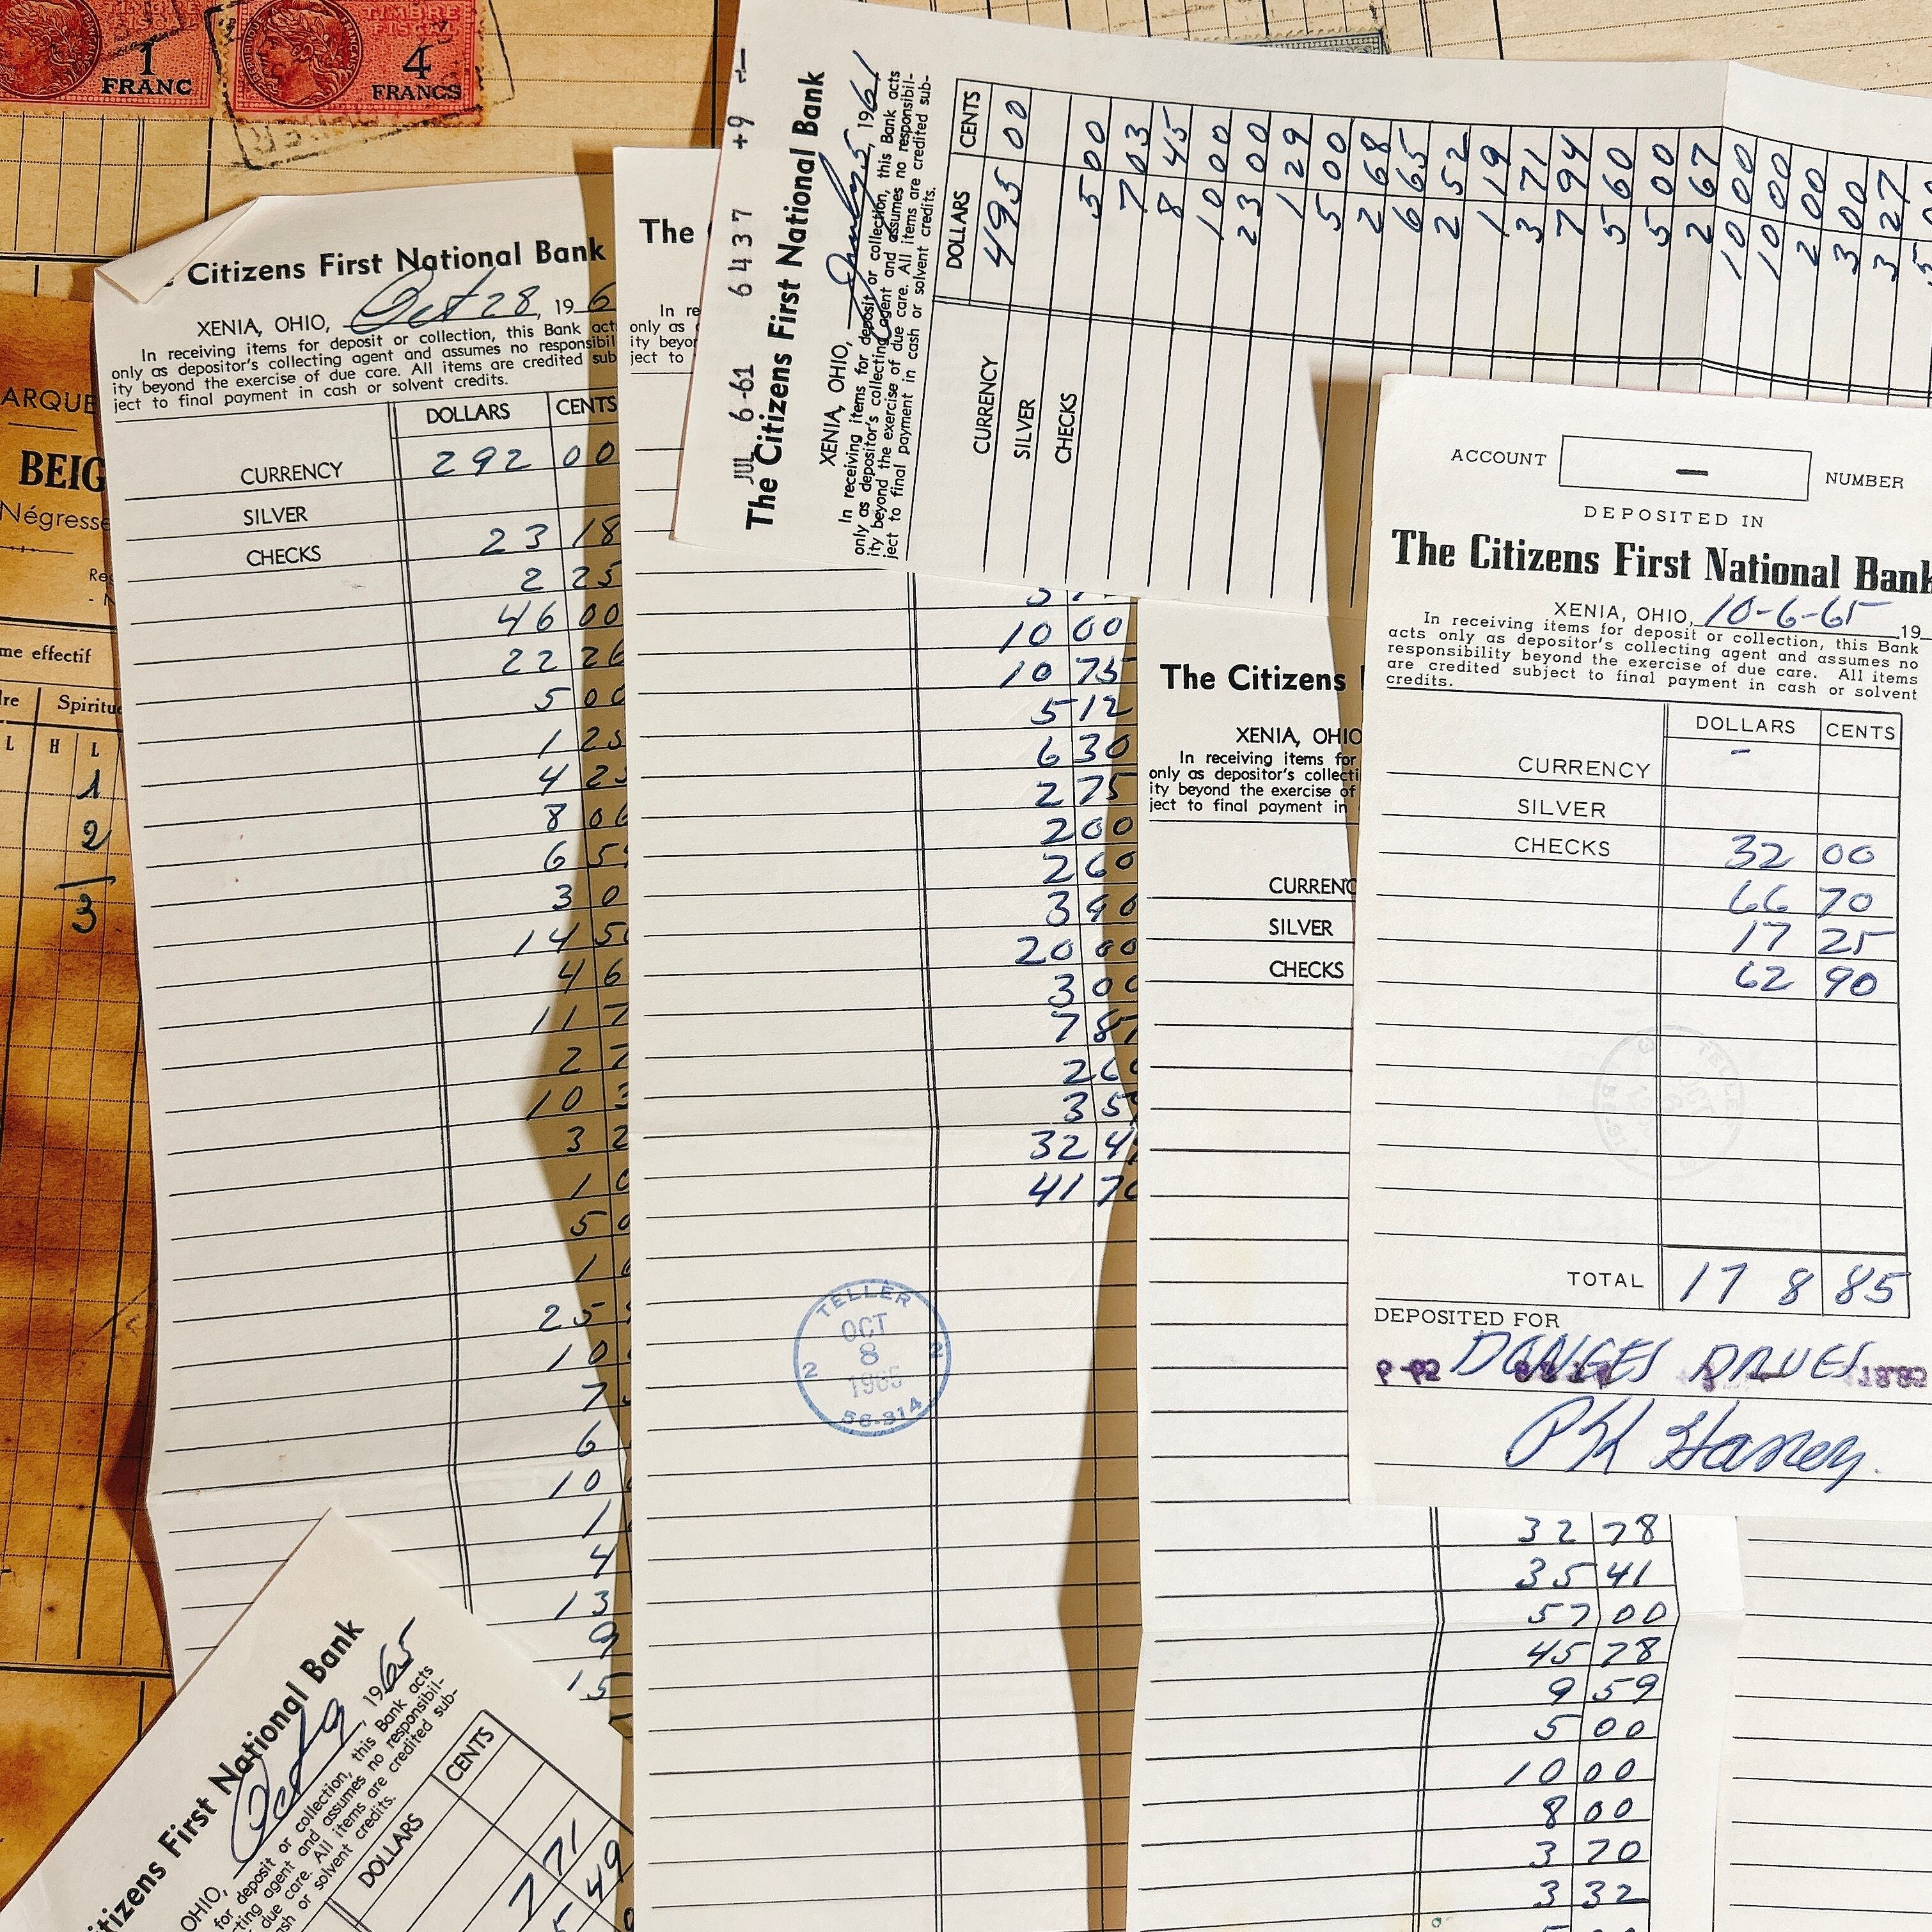 TIMBRE
FISCAL
1
FRANC
TIMBRE
FISCAL
4
FRANCS
ARQUE
BEIG
Négresse
me effectif
Spiritu
L H L
1
2
3
Citizens First National Bank
XENIA, OHIO, Oct 28, 196
In receiving items for deposit or collection, this Bank act
only as depositor's collecting agent and assumes no responsibil
ity beyond the exercise of due care. All items are credited sub
ject to final payment in cash or solvent credits.
DOLLARS CENTS
CURRENCY 292 00
SILVER
CHECKS 23 18
2 25
46 00
22 26
5 00
1 25
4 25
8 00
6 5
3 0
14 50
4 6
11 7
2 7
10 3
3 2
1 0
5 0
1 0
25
10
7
6
10
1
4
13
9
15
The
In re
only as
ity beyon
ject to
10 00
10 75
5 12
6 30
2 75
2 00
2 60
3 90
20 00
3 00
7 87
2 60
3 5
32 4
41 70
TELLER
OCT
8
1965
2 2
56-314
JUL 6-61 6437 +9
The Citizens First National Bank
XENIA, OHIO, July 5, 1961
In receiving items for deposit or collection, this Bank acts
only as depositor's collecting agent and assumes no responsibil-
ity beyond the exercise of due care. All items are credited sub-
ject to final payment in cash or solvent credits.
DOLLARS CENTS
CURRENCY 495 00
SILVER
CHECKS 5 00
7 03
8 45
10 00
23 00
1 29
5 00
2 68
6 65
2 52
1 19
3 71
7 94
5 60
5 00
2 67
10 00
10 00
2 00
3 00
3 27
The Citizens
XENIA, OHIO
In receiving items for
only as depositor's collecti
ity beyond the exercise of
ject to final payment in
CURRENC
SILVER
CHECKS
32 78
35 41
57 00
45 78
9 59
5 00
10 00
8 00
3 70
3 32
ACCOUNT — NUMBER
DEPOSITED IN
The Citizens First National Bank
XENIA, OHIO, 10-6-65 19
In receiving items for deposit or collection, this Bank
acts only as depositor's collecting agent and assumes no
responsibility beyond the exercise of due care. All items
are credited subject to final payment in cash or solvent
credits.
DOLLARS CENTS
CURRENCY -
SILVER
CHECKS 32 00
66 70
17 25
62 90
TOTAL 178 85
DEPOSITED FOR
DONGES DRUGS
itizens First National Bank
OHIO, Oct 9, 1965
for deposit or collection, this Bank acts
cting agent and assumes no responsibil-
due care. All items are credited sub-
sh or solvent credits.
DOLLARS CENTS
7 71
5 49